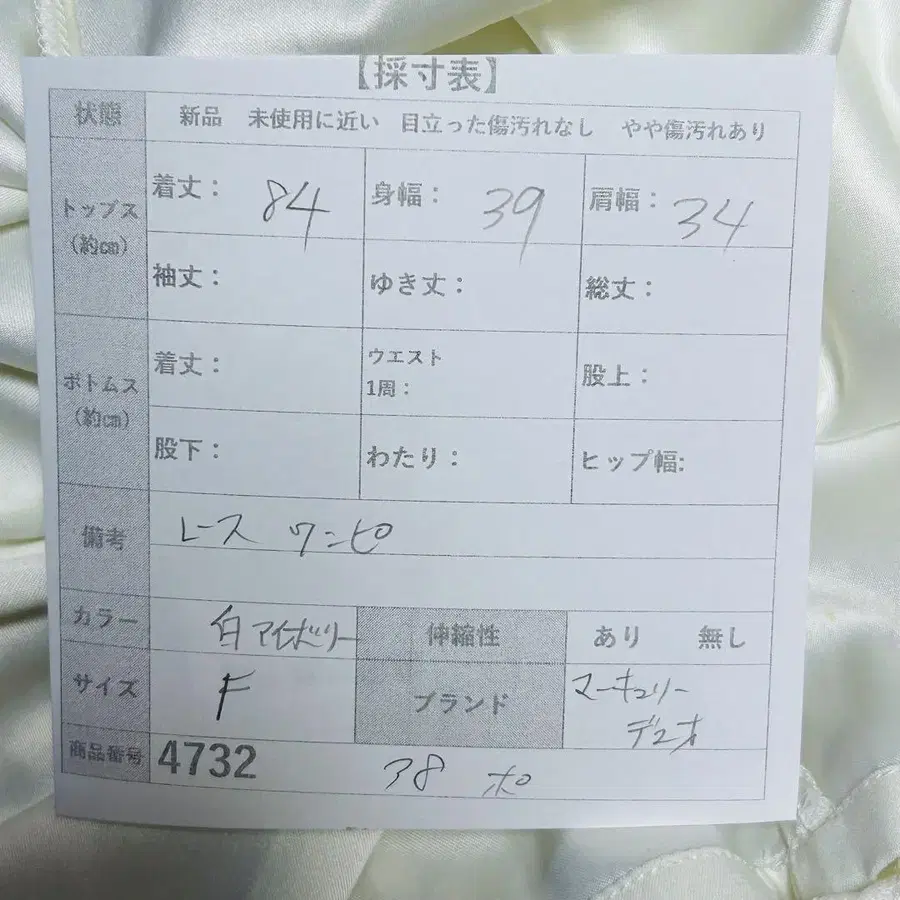 【採寸表】
状態 新品 未使用に近い 目立った傷汚れなし やや傷汚れあり
トップス (約cm)
着丈: 84 身幅: 39 肩幅: 34
袖丈: ゆき丈: 総丈:
ボトムス (約cm)
着丈: ウエスト 1周: 股上:
股下: わたり: ヒップ幅:
備考 レース ワンピ
カラー 白アイボリー 伸縮性 あり 無し
サイズ F ブランド マーキュリー
デュオ
商品番号 4732 38 ポ